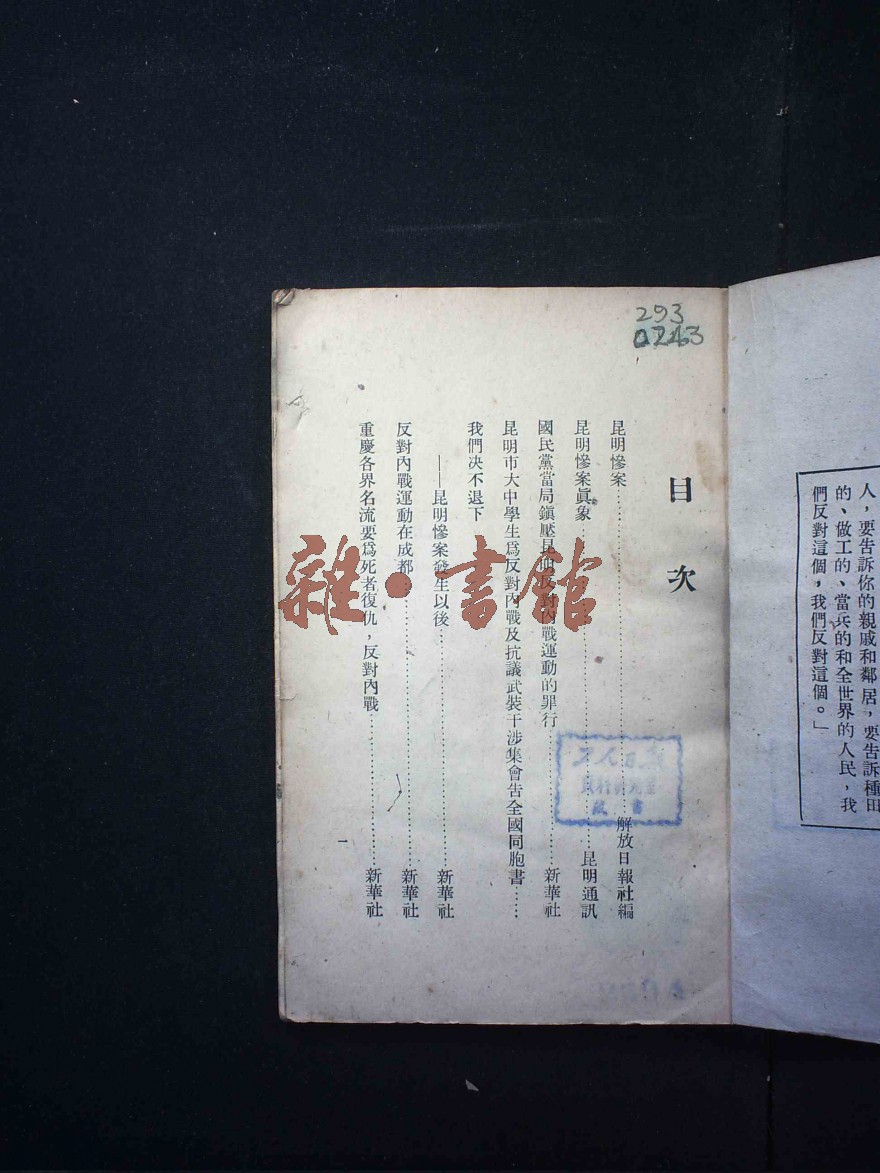 人，要告訴你的親戚和鄰居，要告訴種田
的、做工的、當兵的和全世界的人民，我
們反對這個，我們反對這個。」
293
0243
目次
昆明慘案……解放日報社編
昆明慘案眞象……昆明通訊
國民黨當局鎮壓昆明反對內戰運動的罪行……新華社
昆明市大中學生爲反對內戰及抗議武裝干涉集會告全國同胞書……
我們决不退下
——昆明慘案發生以後……新華社
反對內戰運動在成都……新華社
重慶各界名流要爲死者復仇，反對內戰……新華社
一
雜·書館